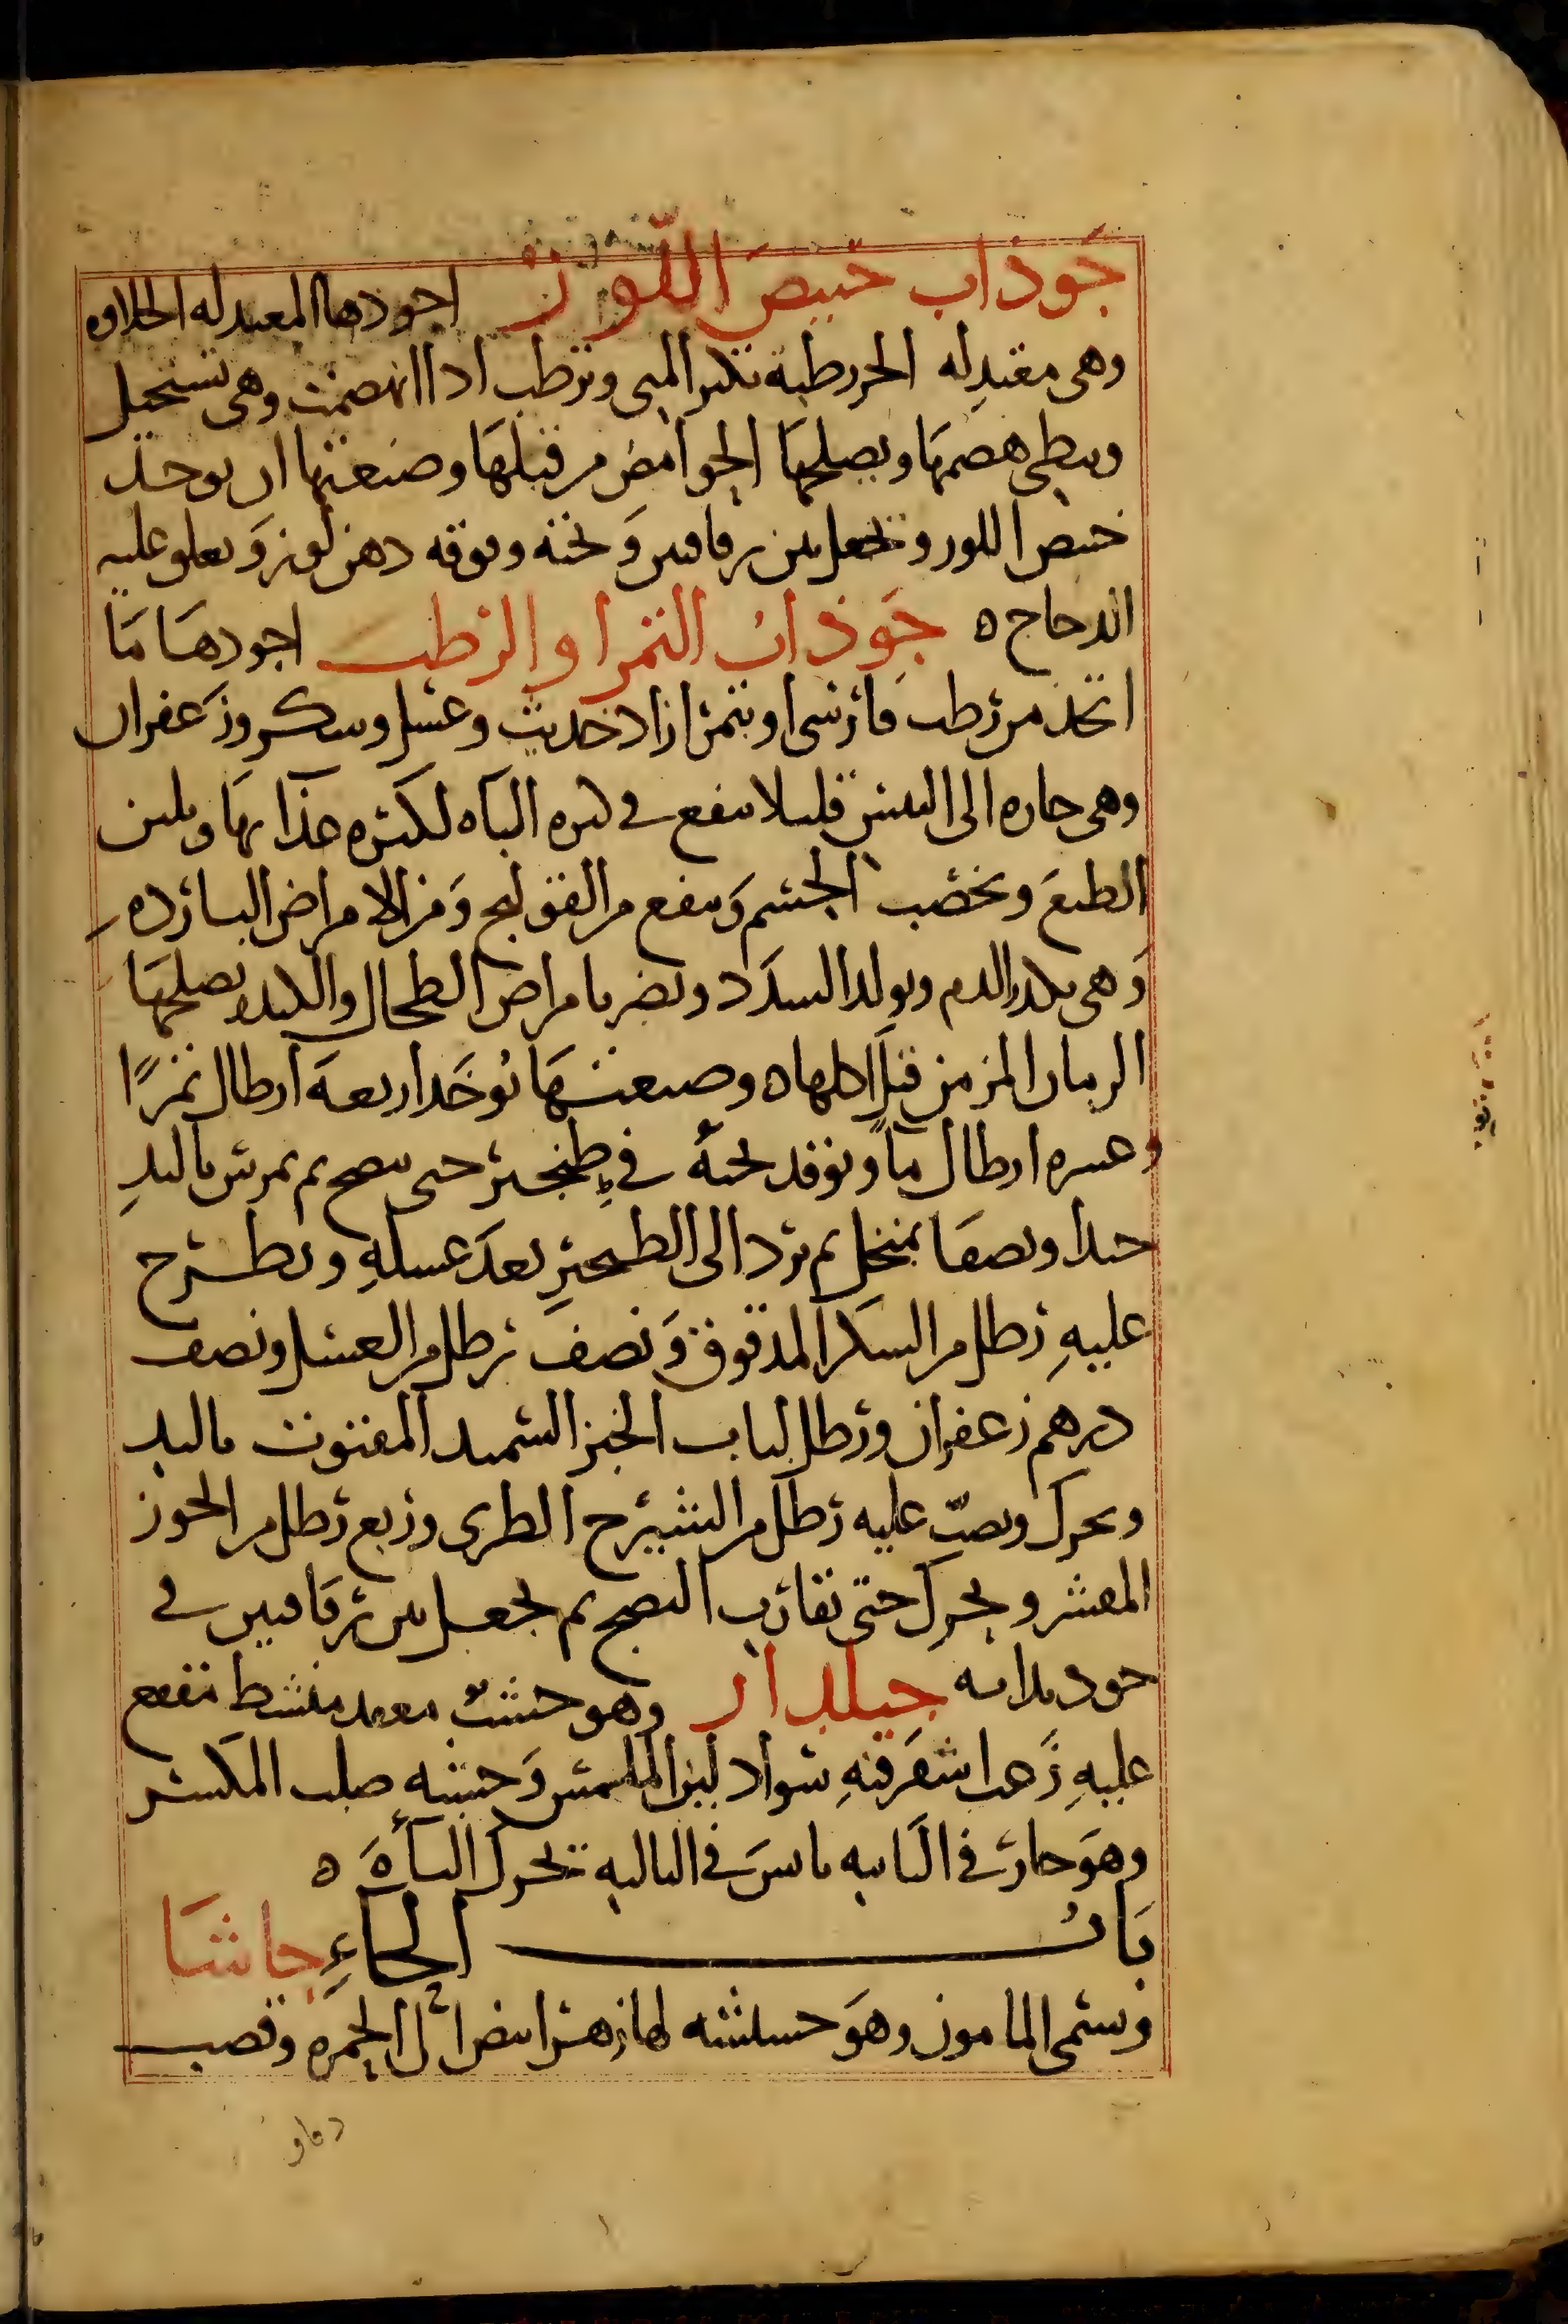 جوذاب خبيص اللوز اجودها المعتدله الحلاوه
وهى معتدله الحر رطبة تكثر المنى وترطب اذا انهضمت وهى تستحيل
وبطى هضمها ويصلحها الحوامض من قبلها وصنعتها ان يوخذ
خبيص اللوز وتجعل بين رقاقتين وتحته وفوقه دهن لوز ويعلو عليه
الدجاج ه جوذاب التمر او الرطب اجودها ما
اتخذ من رطب فارسى او بتمر ازاد حديث وعسل وسكر وزعفران
وهى حاره الى اليبس قليلا ينفع فى كثره الباه لكثره غذايها ويلين
الطبع ويخصب الجسم وينفع من القولنج ومن الامراض البارده
وهى يكدر الدم ويولد السدد ويضر بامراض الطحال والكبد يصلحها
الرمان المز من قبل اكلها ه وصنعتها يوخذ اربعة ارطال تمرا
وعشره ارطال ما ويوقد تحته فى طنجير حتى ينضج ثم يمرس باليد
جيدا ويصفا بمنخل ثم يرد الى الطنجير بعد غسله ويطرح
عليه رطل من السكر المدقوق ونصف رطل من العسل ونصف
درهم زعفران ورطل لباب الخبز السميد المفتوت باليد
ويحرك ويصب عليه رطل من الشيرج الطرى وربع رطل من الجوز
المقشر ويحرك حتى تقارب النضج ثم يجعل بين رقاقتين فى
جوذابه جيلدار وهو خشب منشط
عليه سواد لين الملمس وخشبه صلب المكسر
وهو حار فى الثانيه يابس فى الثالثه يحرك الباه ه
باب الحاء حاشا
ويسمى المامون وهو حشيشه لها زهر ابيض الى الحمره وقضب
دقاق